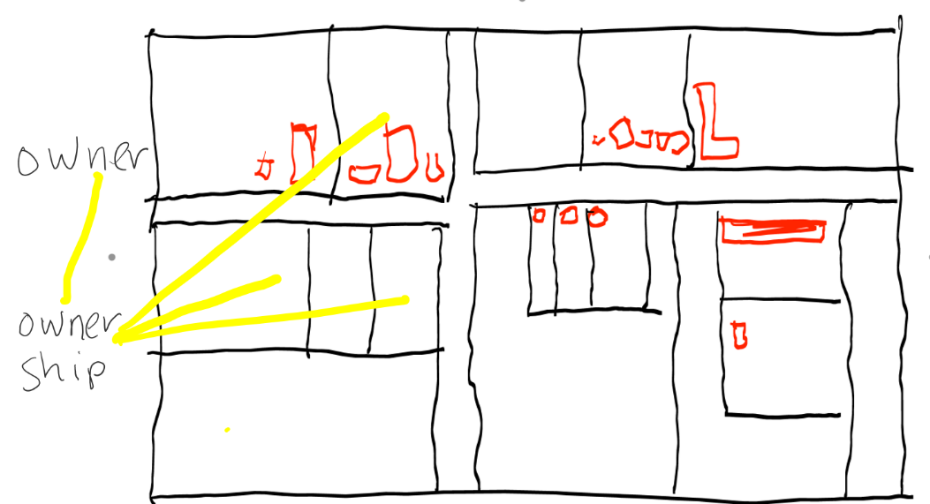 owner
owner
ship